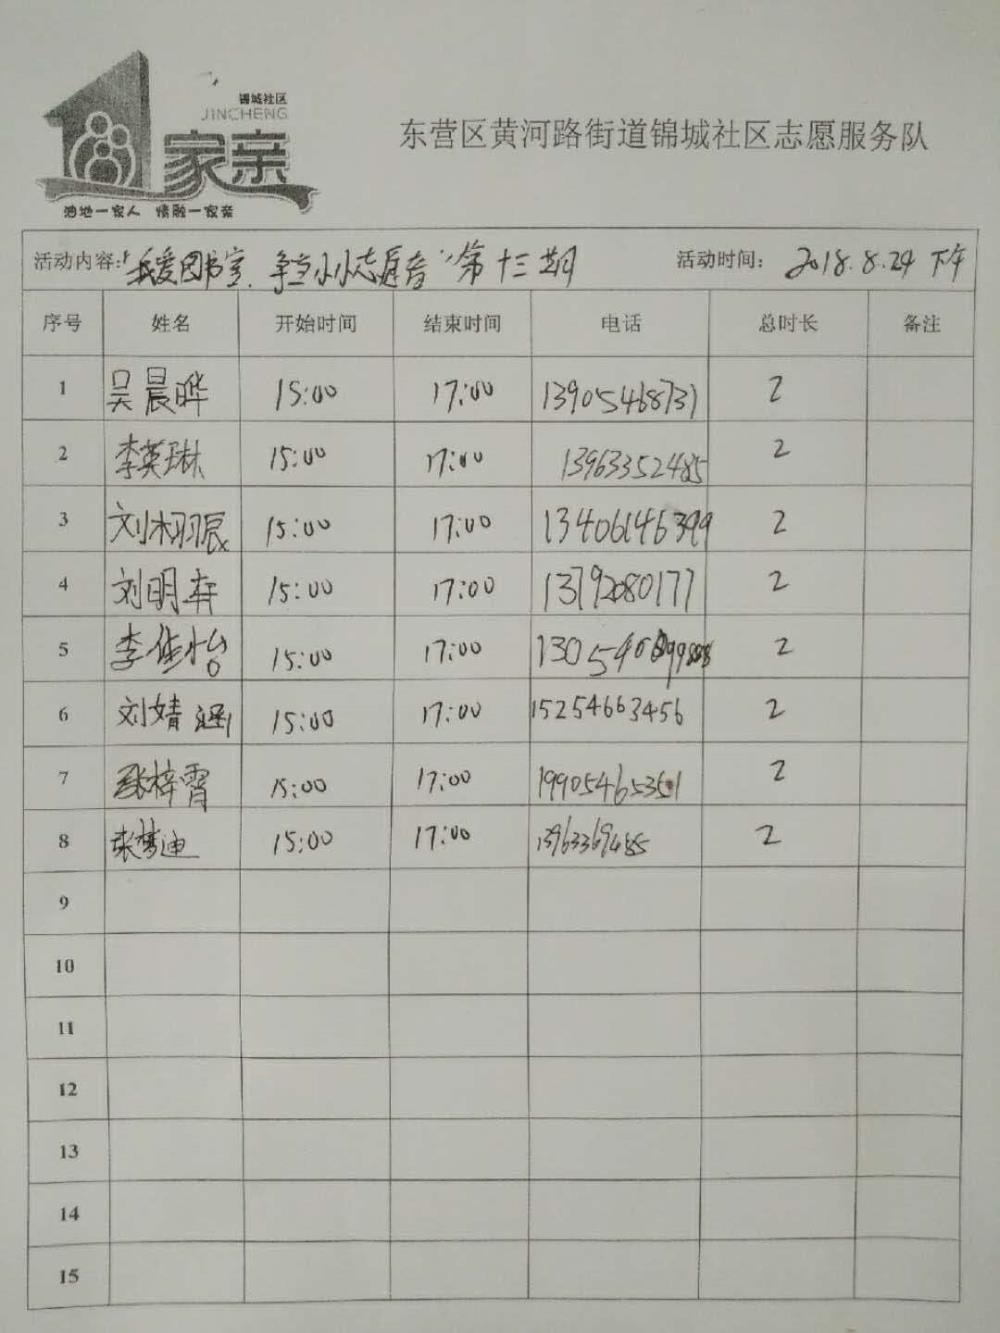 锦城社区
JINCHENG
1家亲
油地一家人 情融一家亲
东营区黄河路街道锦城社区志愿服务队
活动内容:"我爱图书室,争当小小志愿者"第十三期 活动时间: 2018.8.24 下午
序号 姓名 开始时间 结束时间 电话 总时长 备注
1 吴晨晔 15:00 17:00 13905468731 2
2 李英琳 15:00 17:00 13963352485 2
3 刘栩辰 15:00 17:00 13406146399 2
4 刘明轩 15:00 17:00 13792080177 2
5 李佳怡 15:00 17:00 2
6 刘婧涵 15:00 17:00 15254663456 2
7 张梓霄 15:00 17:00 19905465351 2
8 张梦迪 15:00 17:00 13963369485 2
9
10
11
12
13
14
15